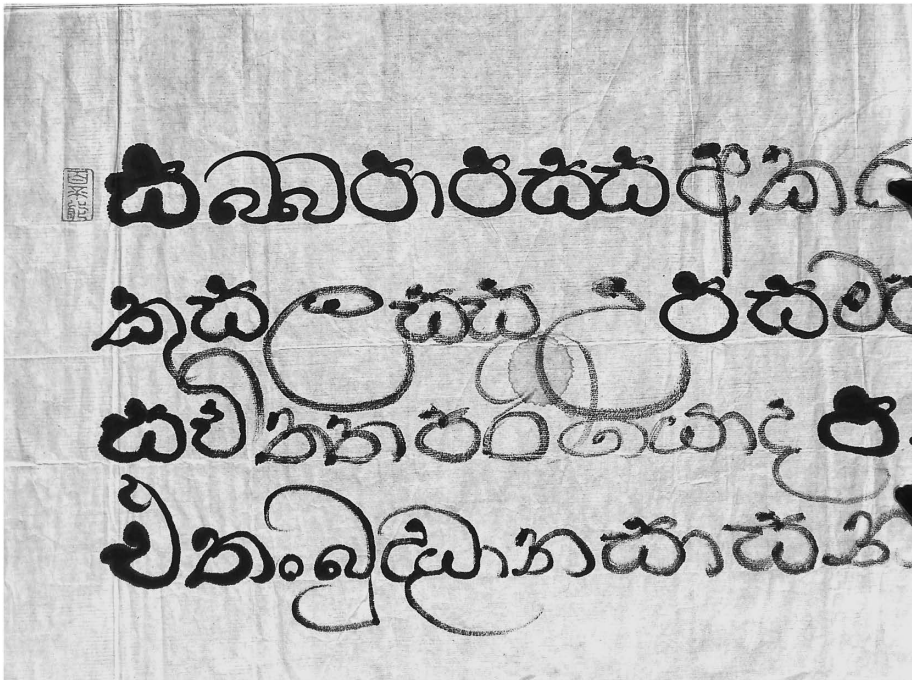 සබ්බපාපස්ස අක
කුසලස්ස උපසම
සචිත්තපරියොදප
ඒතං බුද්ධාන සාසන